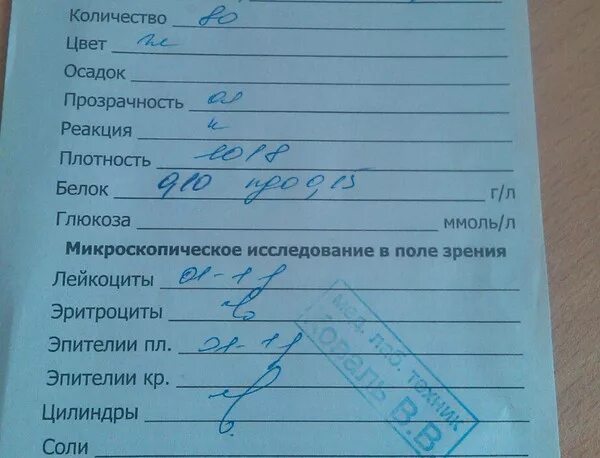 Количество 80
Цвет ж
Осадок
Прозрачность
Реакция к
Плотность 1018
Белок 0,10 N до 0,15 г/л
Глюкоза ммоль/л
Микроскопическое исследование в поле зрения
Лейкоциты 01-1
Эритроциты
Эпителии пл. 01-1
Эпителии кр.
Цилиндры
Соли
мед. лаб. техник
Коваль В.В